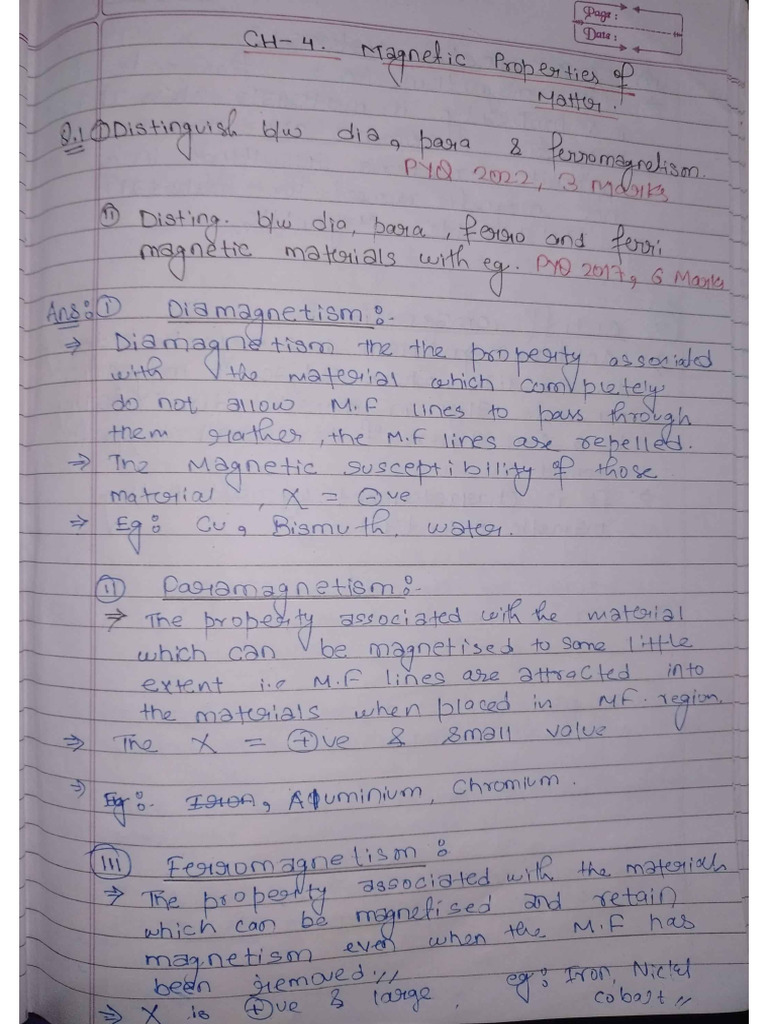 Page:
Date:
CH-4. Magnetic Properties of
Matter.
Q.1 ① Distinguish b/w dia, para & ferromagnetison.
PYQ 2022, 3 Marks
② Disting. b/w dia, para, ferro and ferri
magnetic materials with eg. PYQ 2017, 6 Marks
Ans: ① Diamagnetism:-
⇒ Diamagnetism the the property associated
with the material which completely
do not allow M.F lines to pass through
them rather, the M.F lines are repelled.
⇒ The Magnetic susceptibility of those
material, X = ⊖ve
⇒ Eg: Cu, Bismuth, water.
② Paramagnetism:-
⇒ The property associated with the material
which can be magnetised to some little
extent i.e M.F lines are attracted into
the materials when placed in MF. region.
⇒ The X = ⊕ve & small value
⇒ Eg:- Iron, Aluminium, Chromium.
III Ferromagnetison:
⇒ The property associated with the materials
which can be magnetised and retain
magnetism even when the M.F has
been removed.//
eg: Iron, Nickel
⇒ X is ⊕ve & large
cobalt //